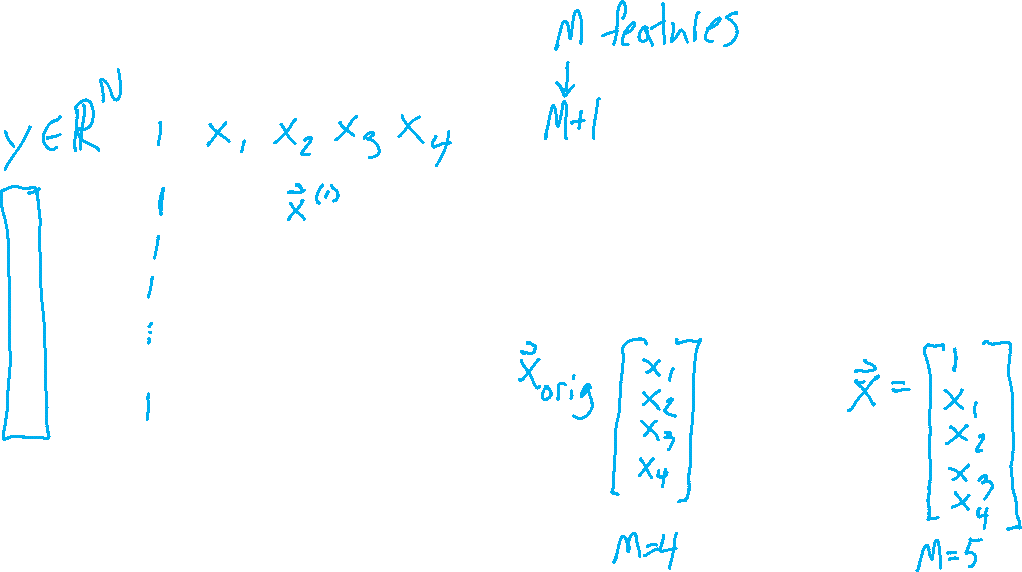 M features
↓
M+1
y ∈ ℝ^N 1 x₁ x₂ x₃ x₄
1 x⃗⁽¹⁾
1
1
⋮
1
x⃗_orig [x₁ x₂ x₃ x₄]
M=4
x⃗ = [1 x₁ x₂ x₃ x₄]
M=5